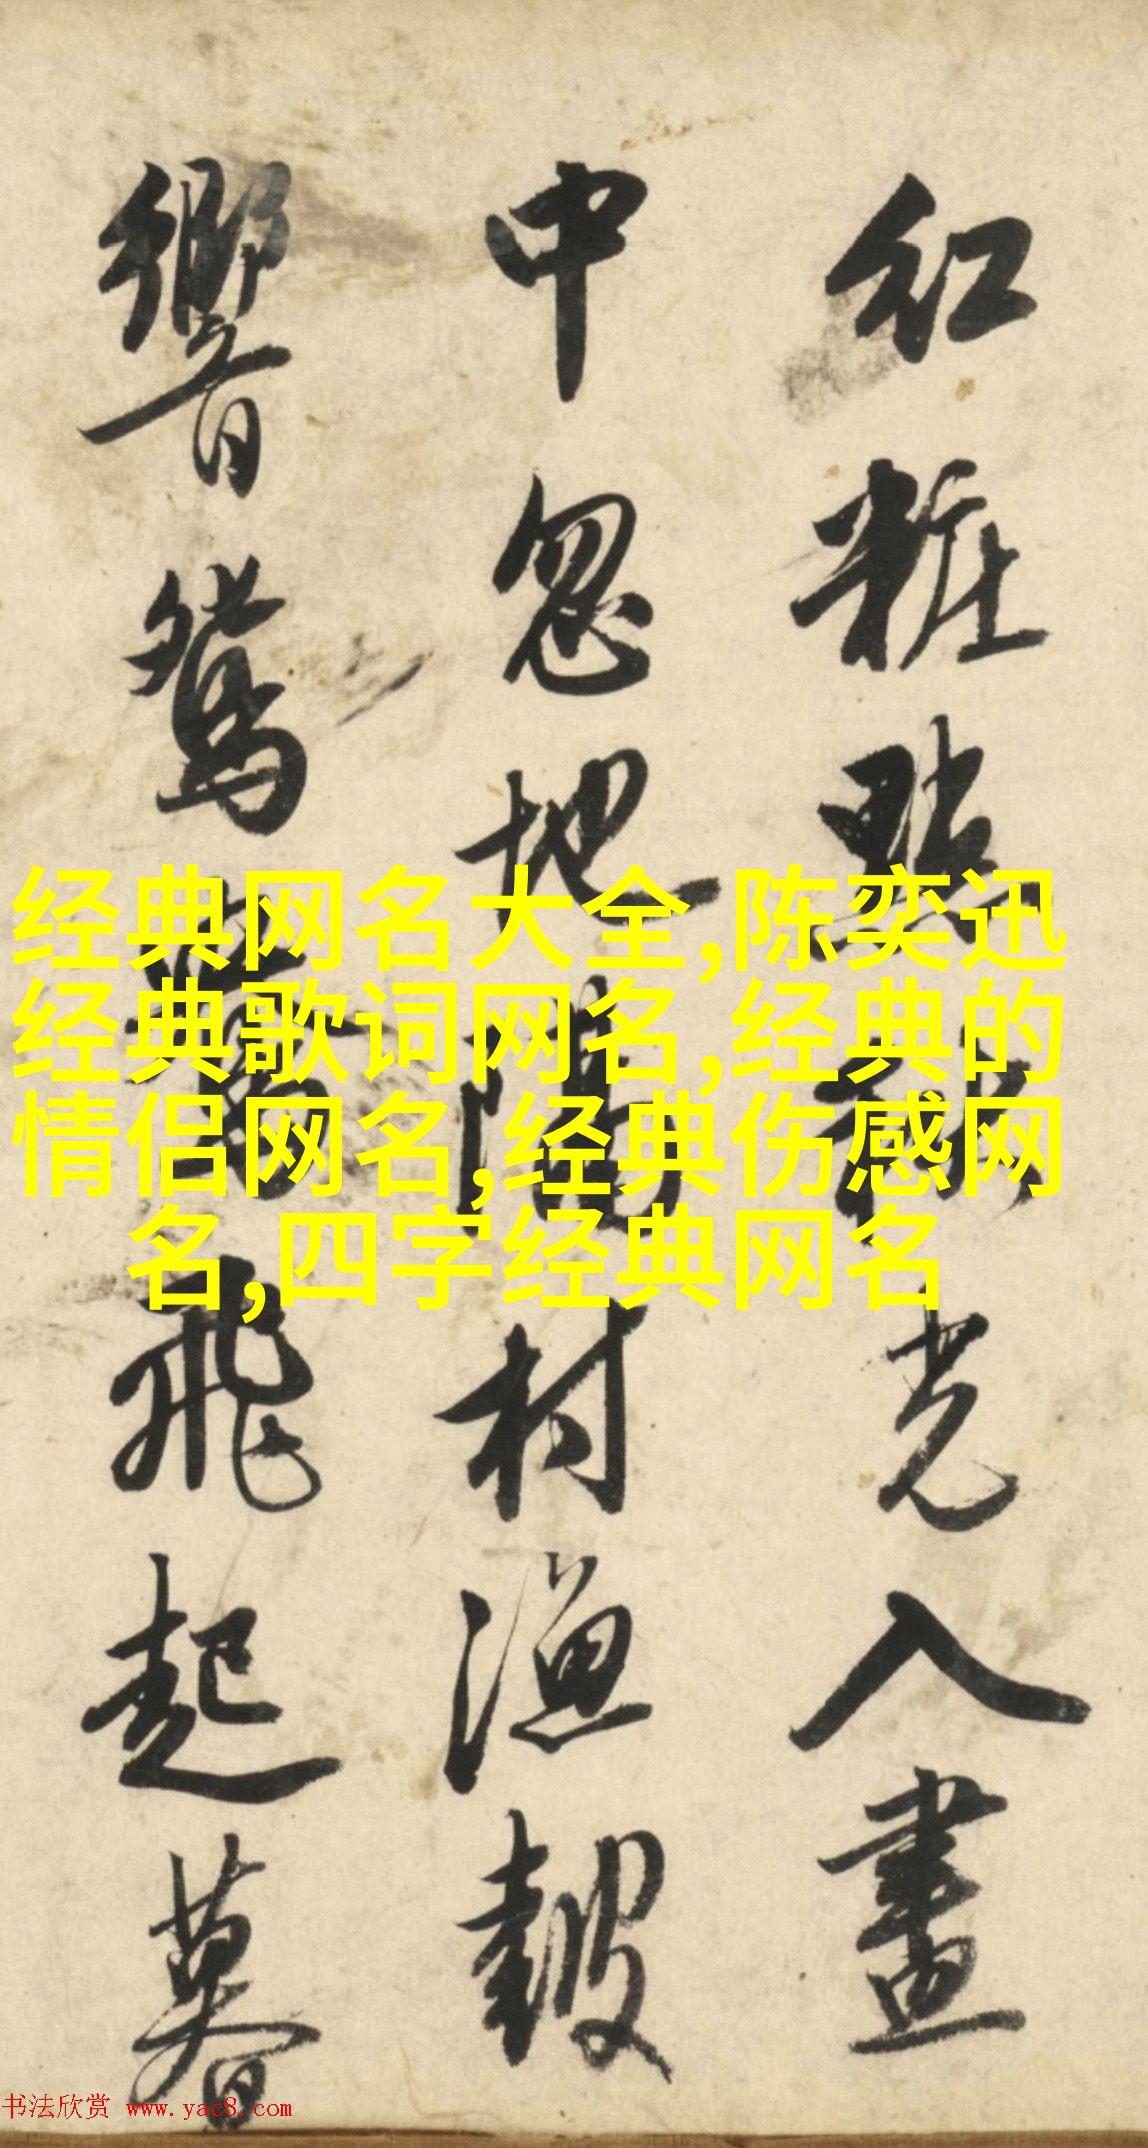 紅粧點光入畫
中忽地隔村漁皷
響鴛鴦飛起暮
经典网名大全,陈奕迅
经典歌词网名,经典的
情侣网名,经典伤感网
名,四字经典网名
书法欣赏 www.yac8.com